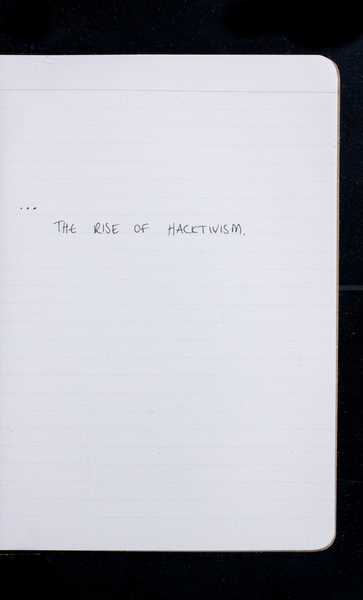 ...
THE RISE OF HACKTIVISM.